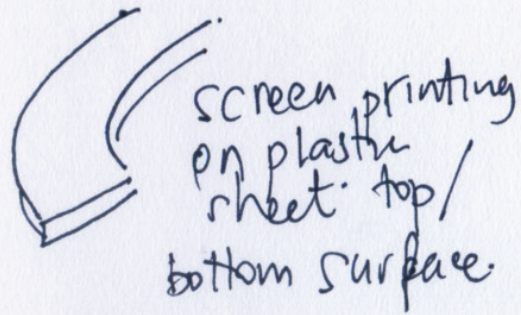 screen printing
on plastic
sheet. top/
bottom surface.